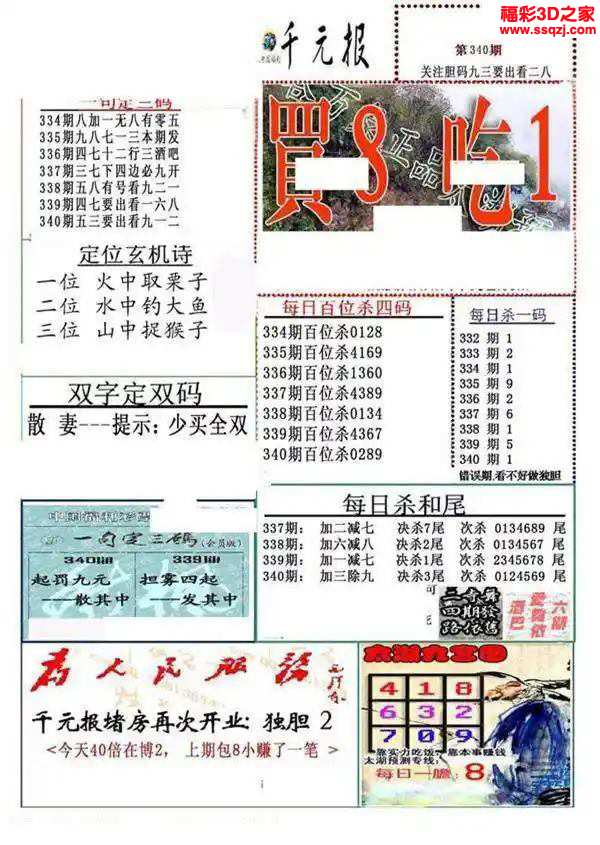 福彩3D之家
www.ssqzj.com
千元报
第340期
关注胆码九三要出看二八
一句定三码
334期八加一无八有零五
335期九八七一三本期发
336期四七十二行三酒吧
337期三七下四边必九开
338期五八有号看九二一
339期四七要出看一六八
340期五三要出看九一二
買8吃1
定位玄机诗
一位 火中取栗子
二位 水中钓大鱼
三位 山中捉猴子
双字定双码
散 妻---提示:少买全双
每日百位杀四码
334期百位杀0128
335期百位杀4169
336期百位杀1360
337期百位杀4389
338期百位杀0134
339期百位杀4367
340期百位杀0289
每日杀一码
332 期 1
333 期 2
334 期 1
335 期 9
336 期 2
337 期 6
338 期 1
339 期 5
340 期 1
错误期,看不好做独胆
每日杀和尾
337期: 加二减七 决杀7尾 次杀 0134689 尾
338期: 加六减八 决杀2尾 次杀 0134567 尾
339期: 加一减七 决杀1尾 次杀 2345678 尾
340期: 加三除九 决杀3尾 次杀 0124569 尾
一句定三码(会员版)
340期
起罚九元
——散其中
339期
担雾四起
——发其中
为人民服务
千元报堵房再次开业: 独胆 2
<今天40倍在博2, 上期包8小赚了一笔>
太湖九宫图
4 1 8
6 3 2
7 0 9
靠实力吃饭, 靠本事赚钱
太湖预测专线:
每日一胆: 8